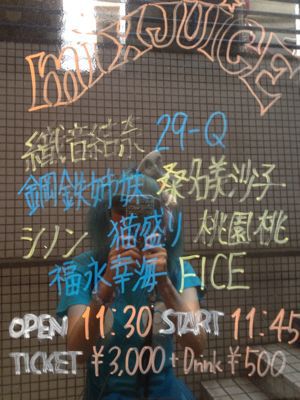 miX JUiCE
織音結奈 29-Q
鋼鉄姉妹 桑名美沙子
シノン 猫盛り 桃園桃
福永幸海 FICE
OPEN 11:30 START 11:45
TICKET ¥3,000+Drink ¥500